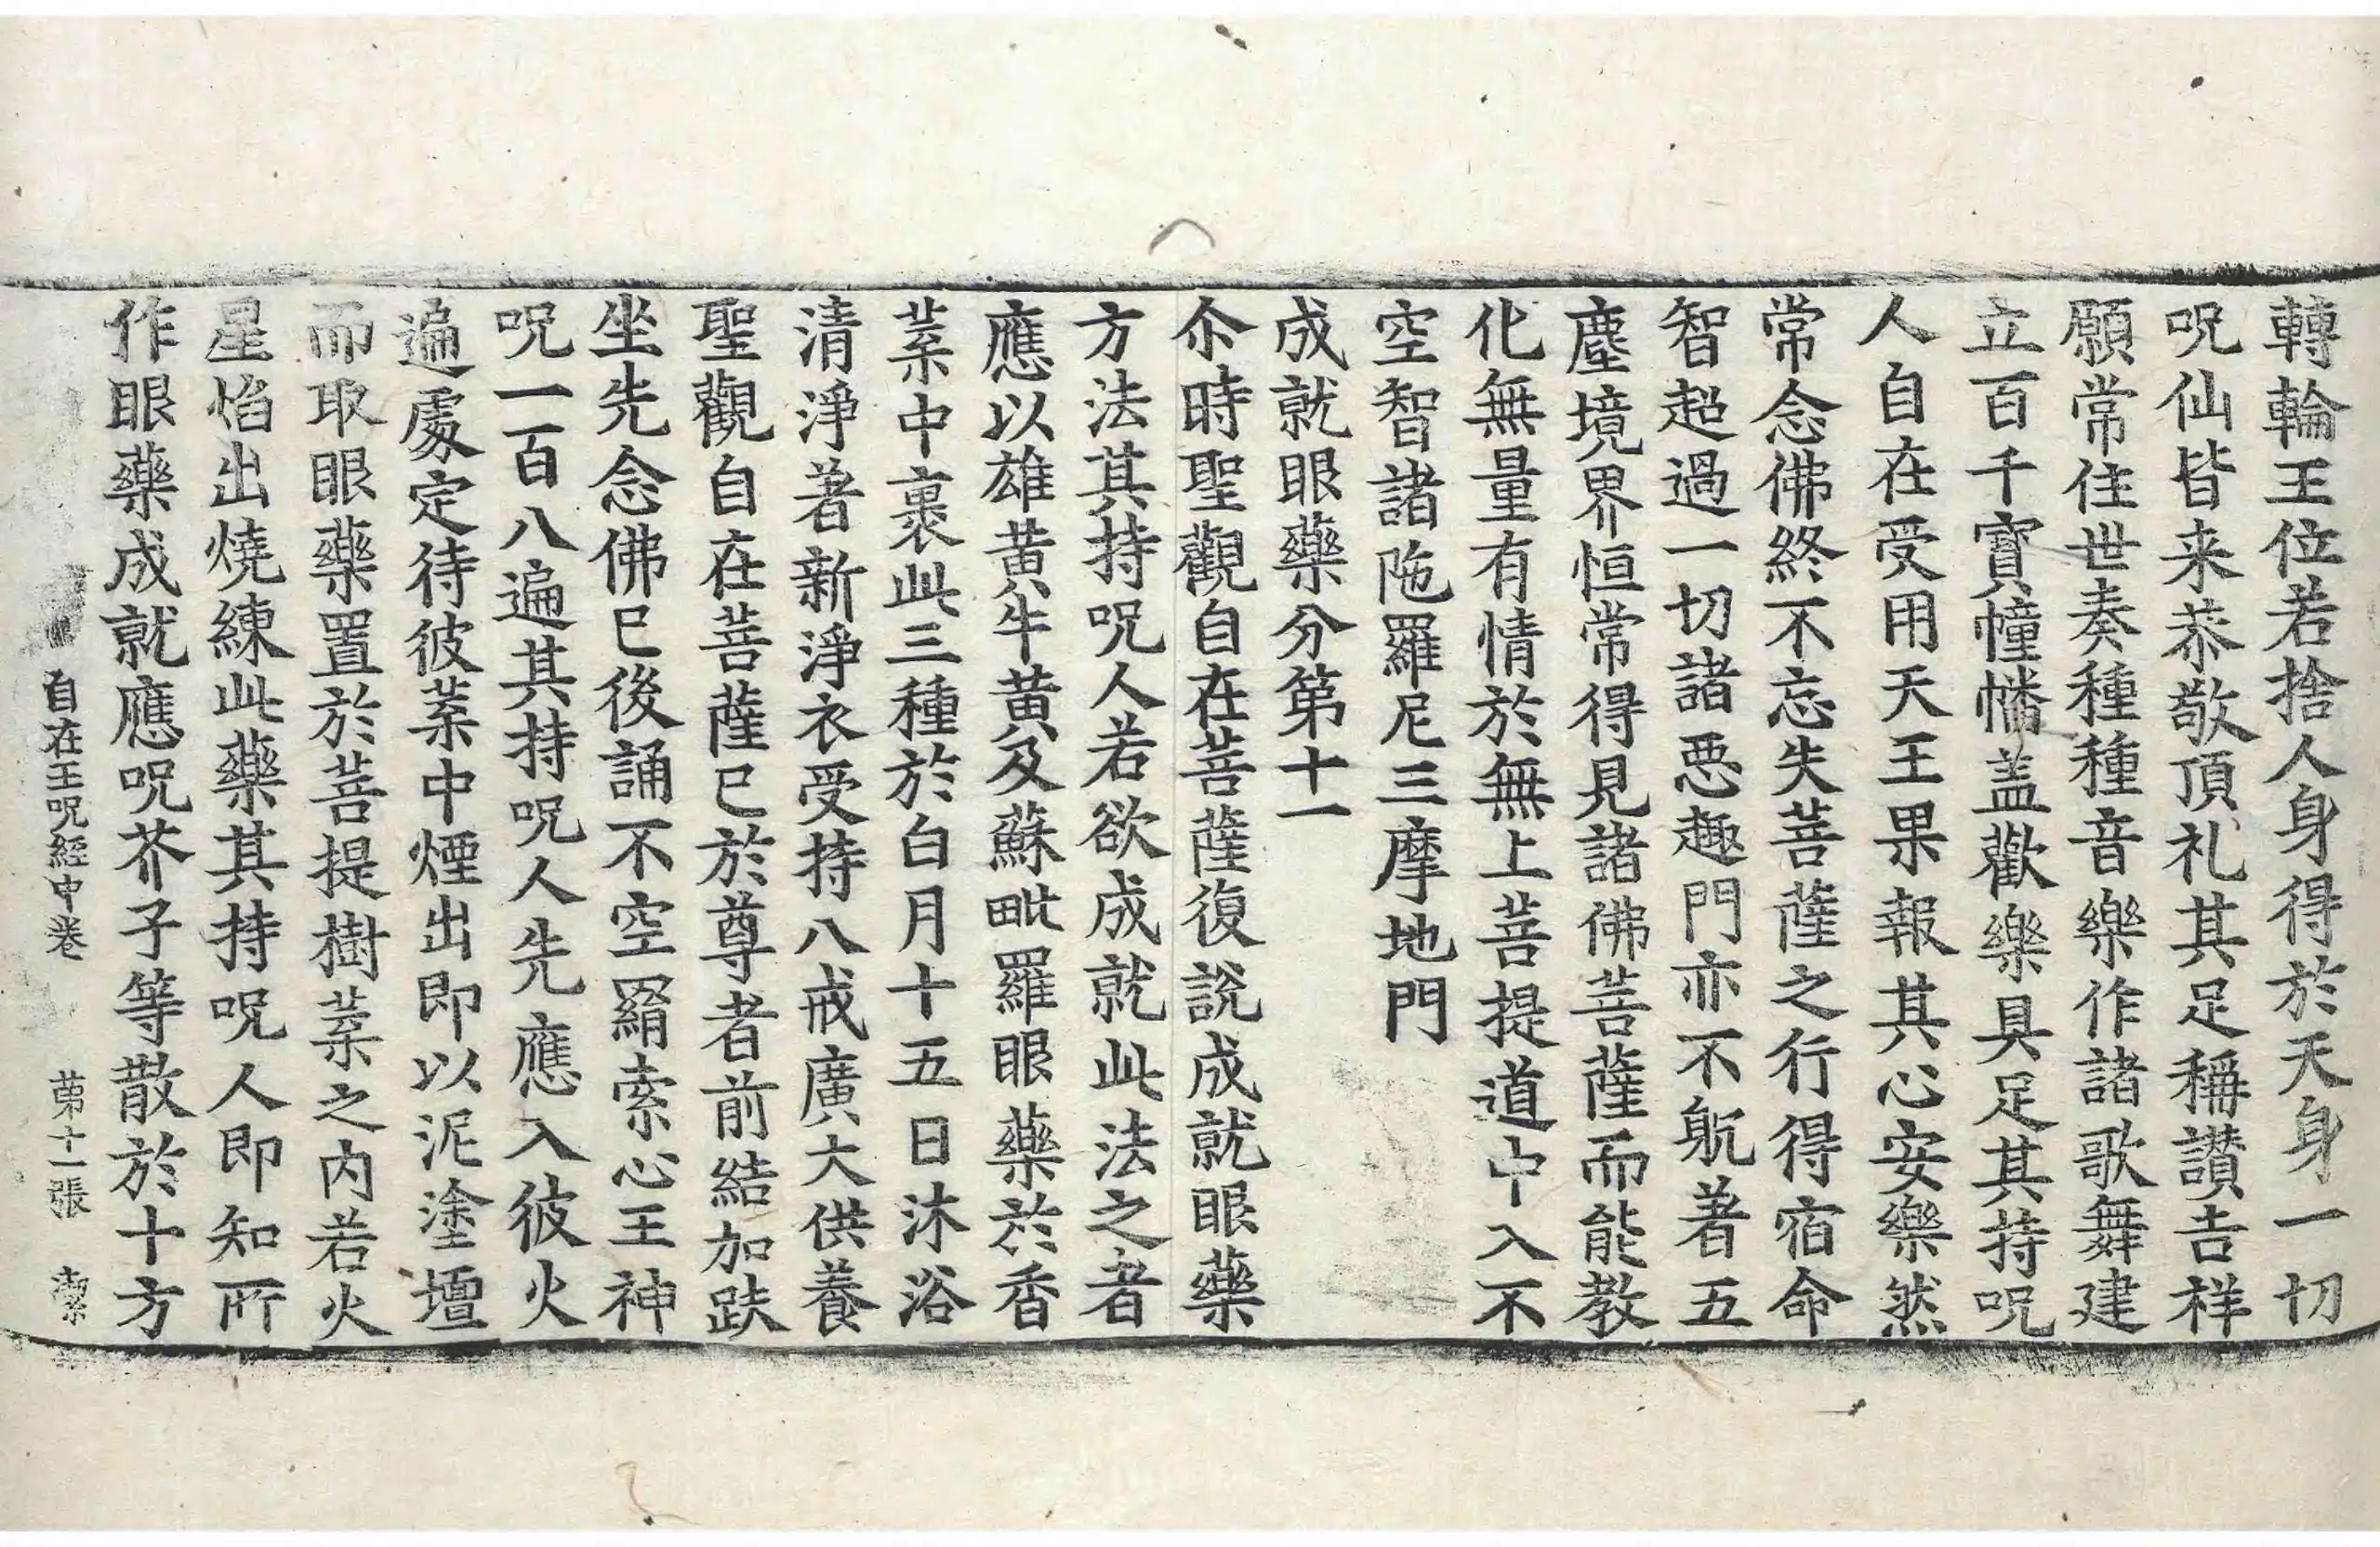 轉輪王位若捨人身得於天身一切
呪仙皆来恭敬頂礼其足稱讃吉祥
願常住世奏種種音樂作諸歌舞建
立百千寳幢幡盖歡樂具足其持呪
人自在受用天王果報其心安樂然
常念佛終不忘失菩薩之行得宿命
智超過一切諸惡趣門亦不躭著五
塵境界恒常得見諸佛菩薩而能教
化無量有情於無上菩提道中入不
空智諸陁羅尼三摩地門
成就眼藥分第十一
尒時聖觀自在菩薩復說成就眼藥
方法其持呪人若欲成就此法之者
應以雄黃牛黃及蘇毗羅眼藥於香
葉中裹此三種於白月十五日沐浴
清淨著新淨衣受持八戒廣大供養
聖觀自在菩薩已於尊者前結加趺
坐先念佛已後誦不空羂索心王神
呪一百八遍其持呪人先應入彼火
遍處定待彼葉中煙出即以泥塗壇
而取眼藥置於菩提樹葉之內若火
星焰出燒練此藥其持呪人即知所
作眼藥成就應呪芥子等散於十方
自在王呪經中卷 第十一張 潔